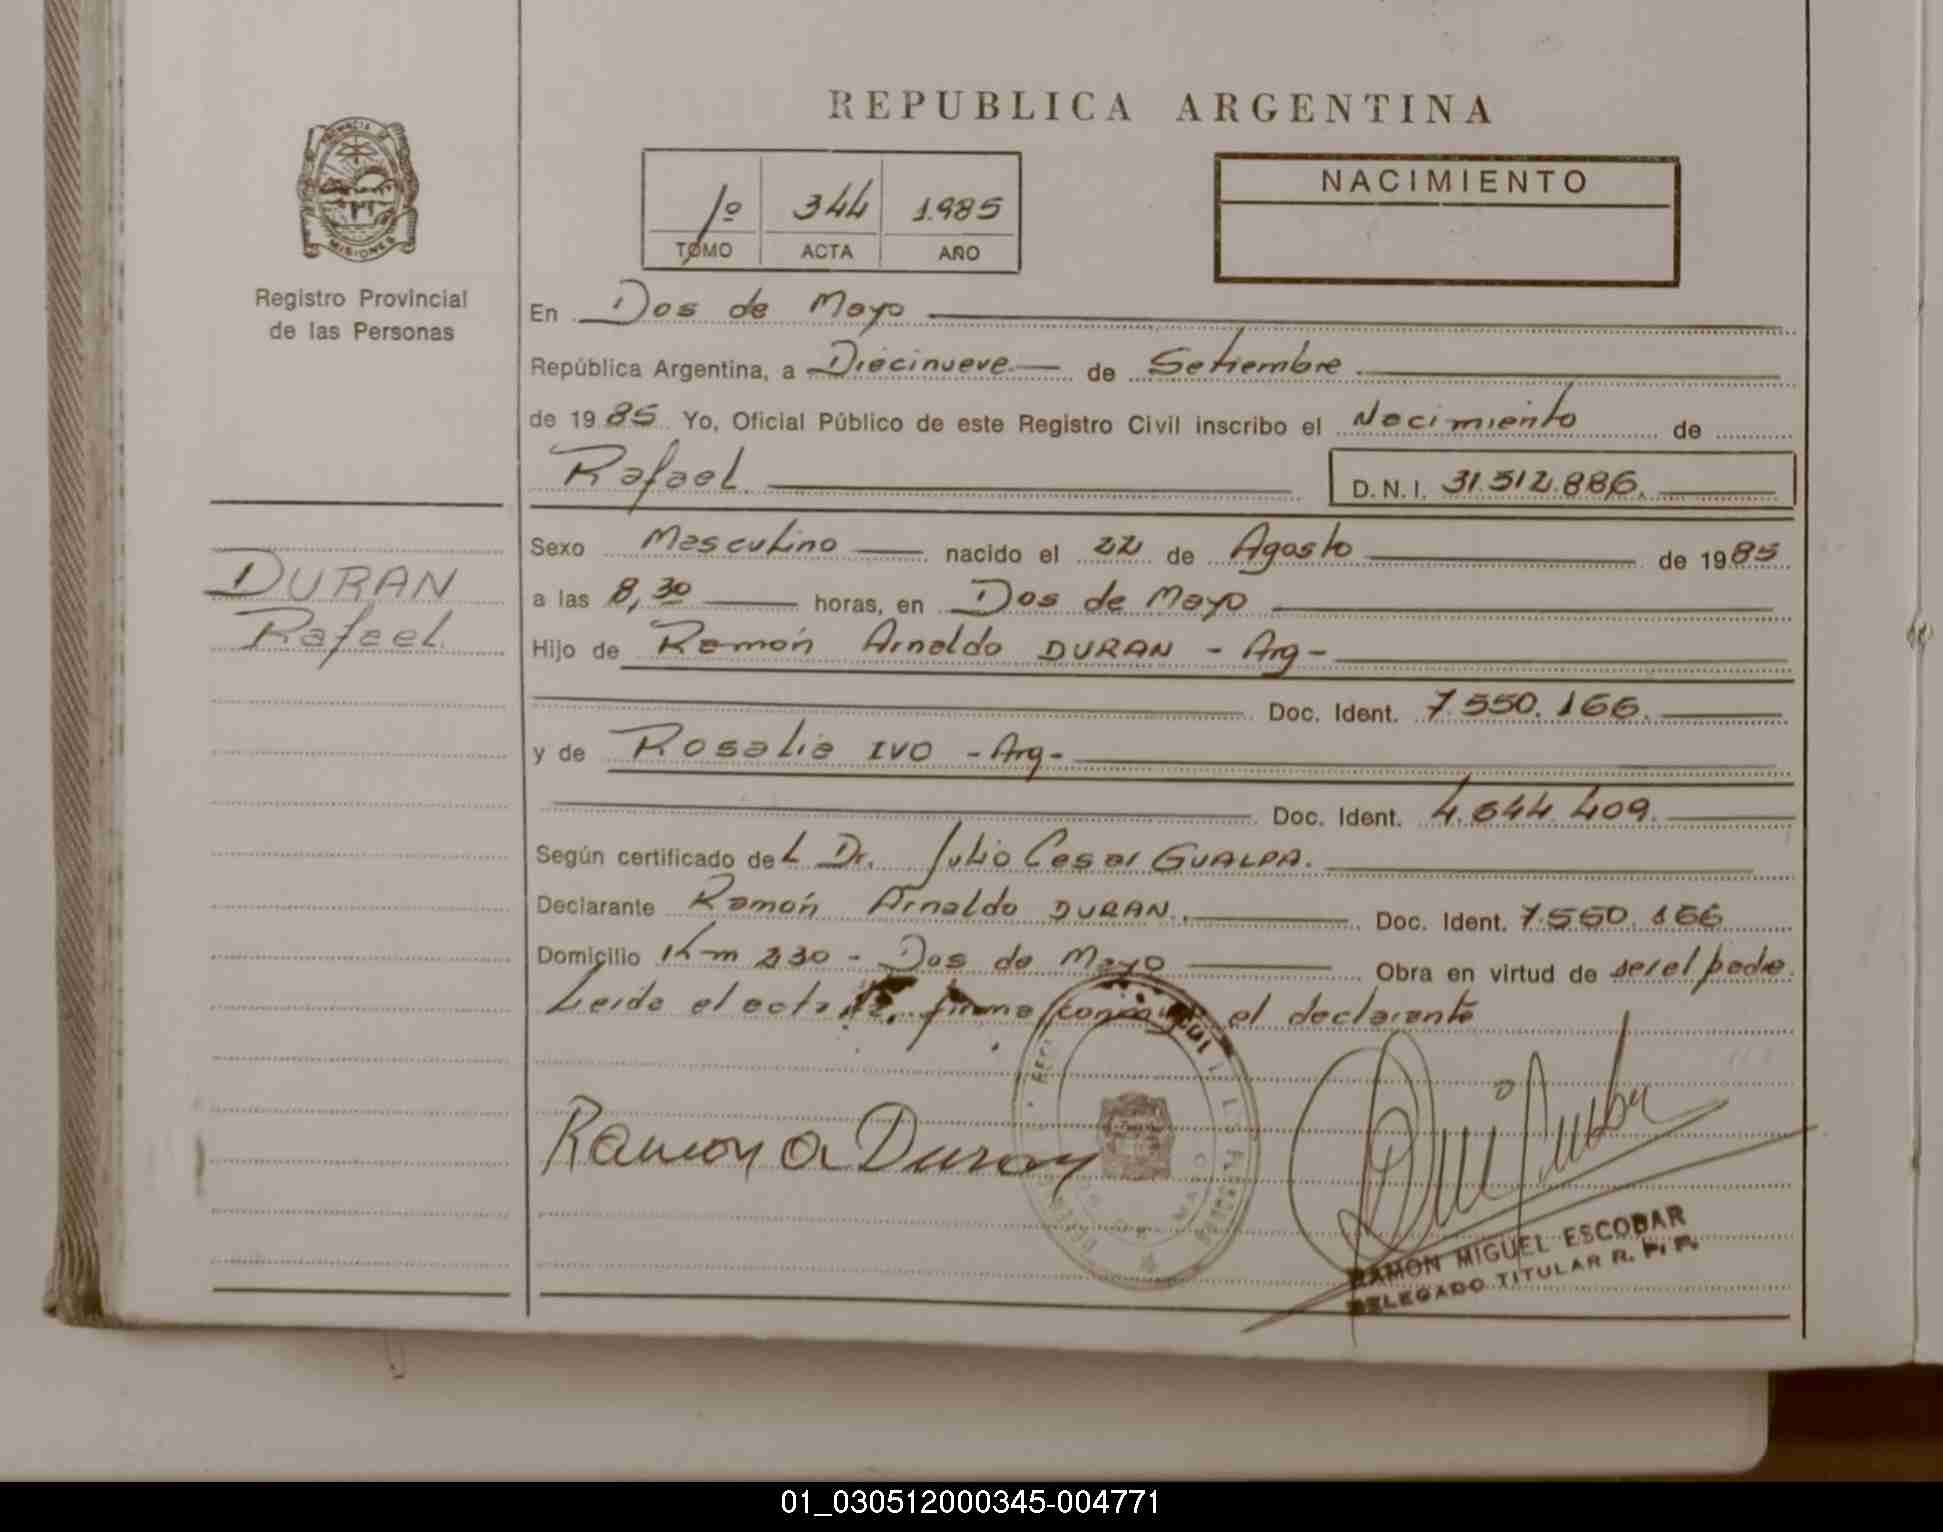 REPUBLICA ARGENTINA
PROVINCIA DE
MISIONES
Registro Provincial
de las Personas
1º 344 1.985
TOMO ACTA AÑO
NACIMIENTO
En Dos de Mayo
República Argentina, a Diecinueve de Setiembre
de 1985 Yo, Oficial Público de este Registro Civil inscribo el Nacimiento de
Rafael D.N.I. 31.512.886.
DURAN
Rafael
Sexo Masculino nacido el 22 de Agosto de 1985
a las 8,30 horas, en Dos de Mayo
Hijo de Ramón Arnaldo DURAN - Arg -
Doc. Ident. 7.550.166.
y de Rosalia IVO - Arg -
Doc. Ident. 4.644.409.
Según certificado del Dr. Julio Cesar GUALPA.
Declarante Ramón Arnaldo DURAN. Doc. Ident. 7.550.166
Domicilio Km 230 - Dos de Mayo Obra en virtud de ser el padre.
Leida el acta firma conmigo el declarante
Ramon A Duran
RAMON MIGUEL ESCOBAR
DELEGADO TITULAR R. P. P.
01_030512000345-004771